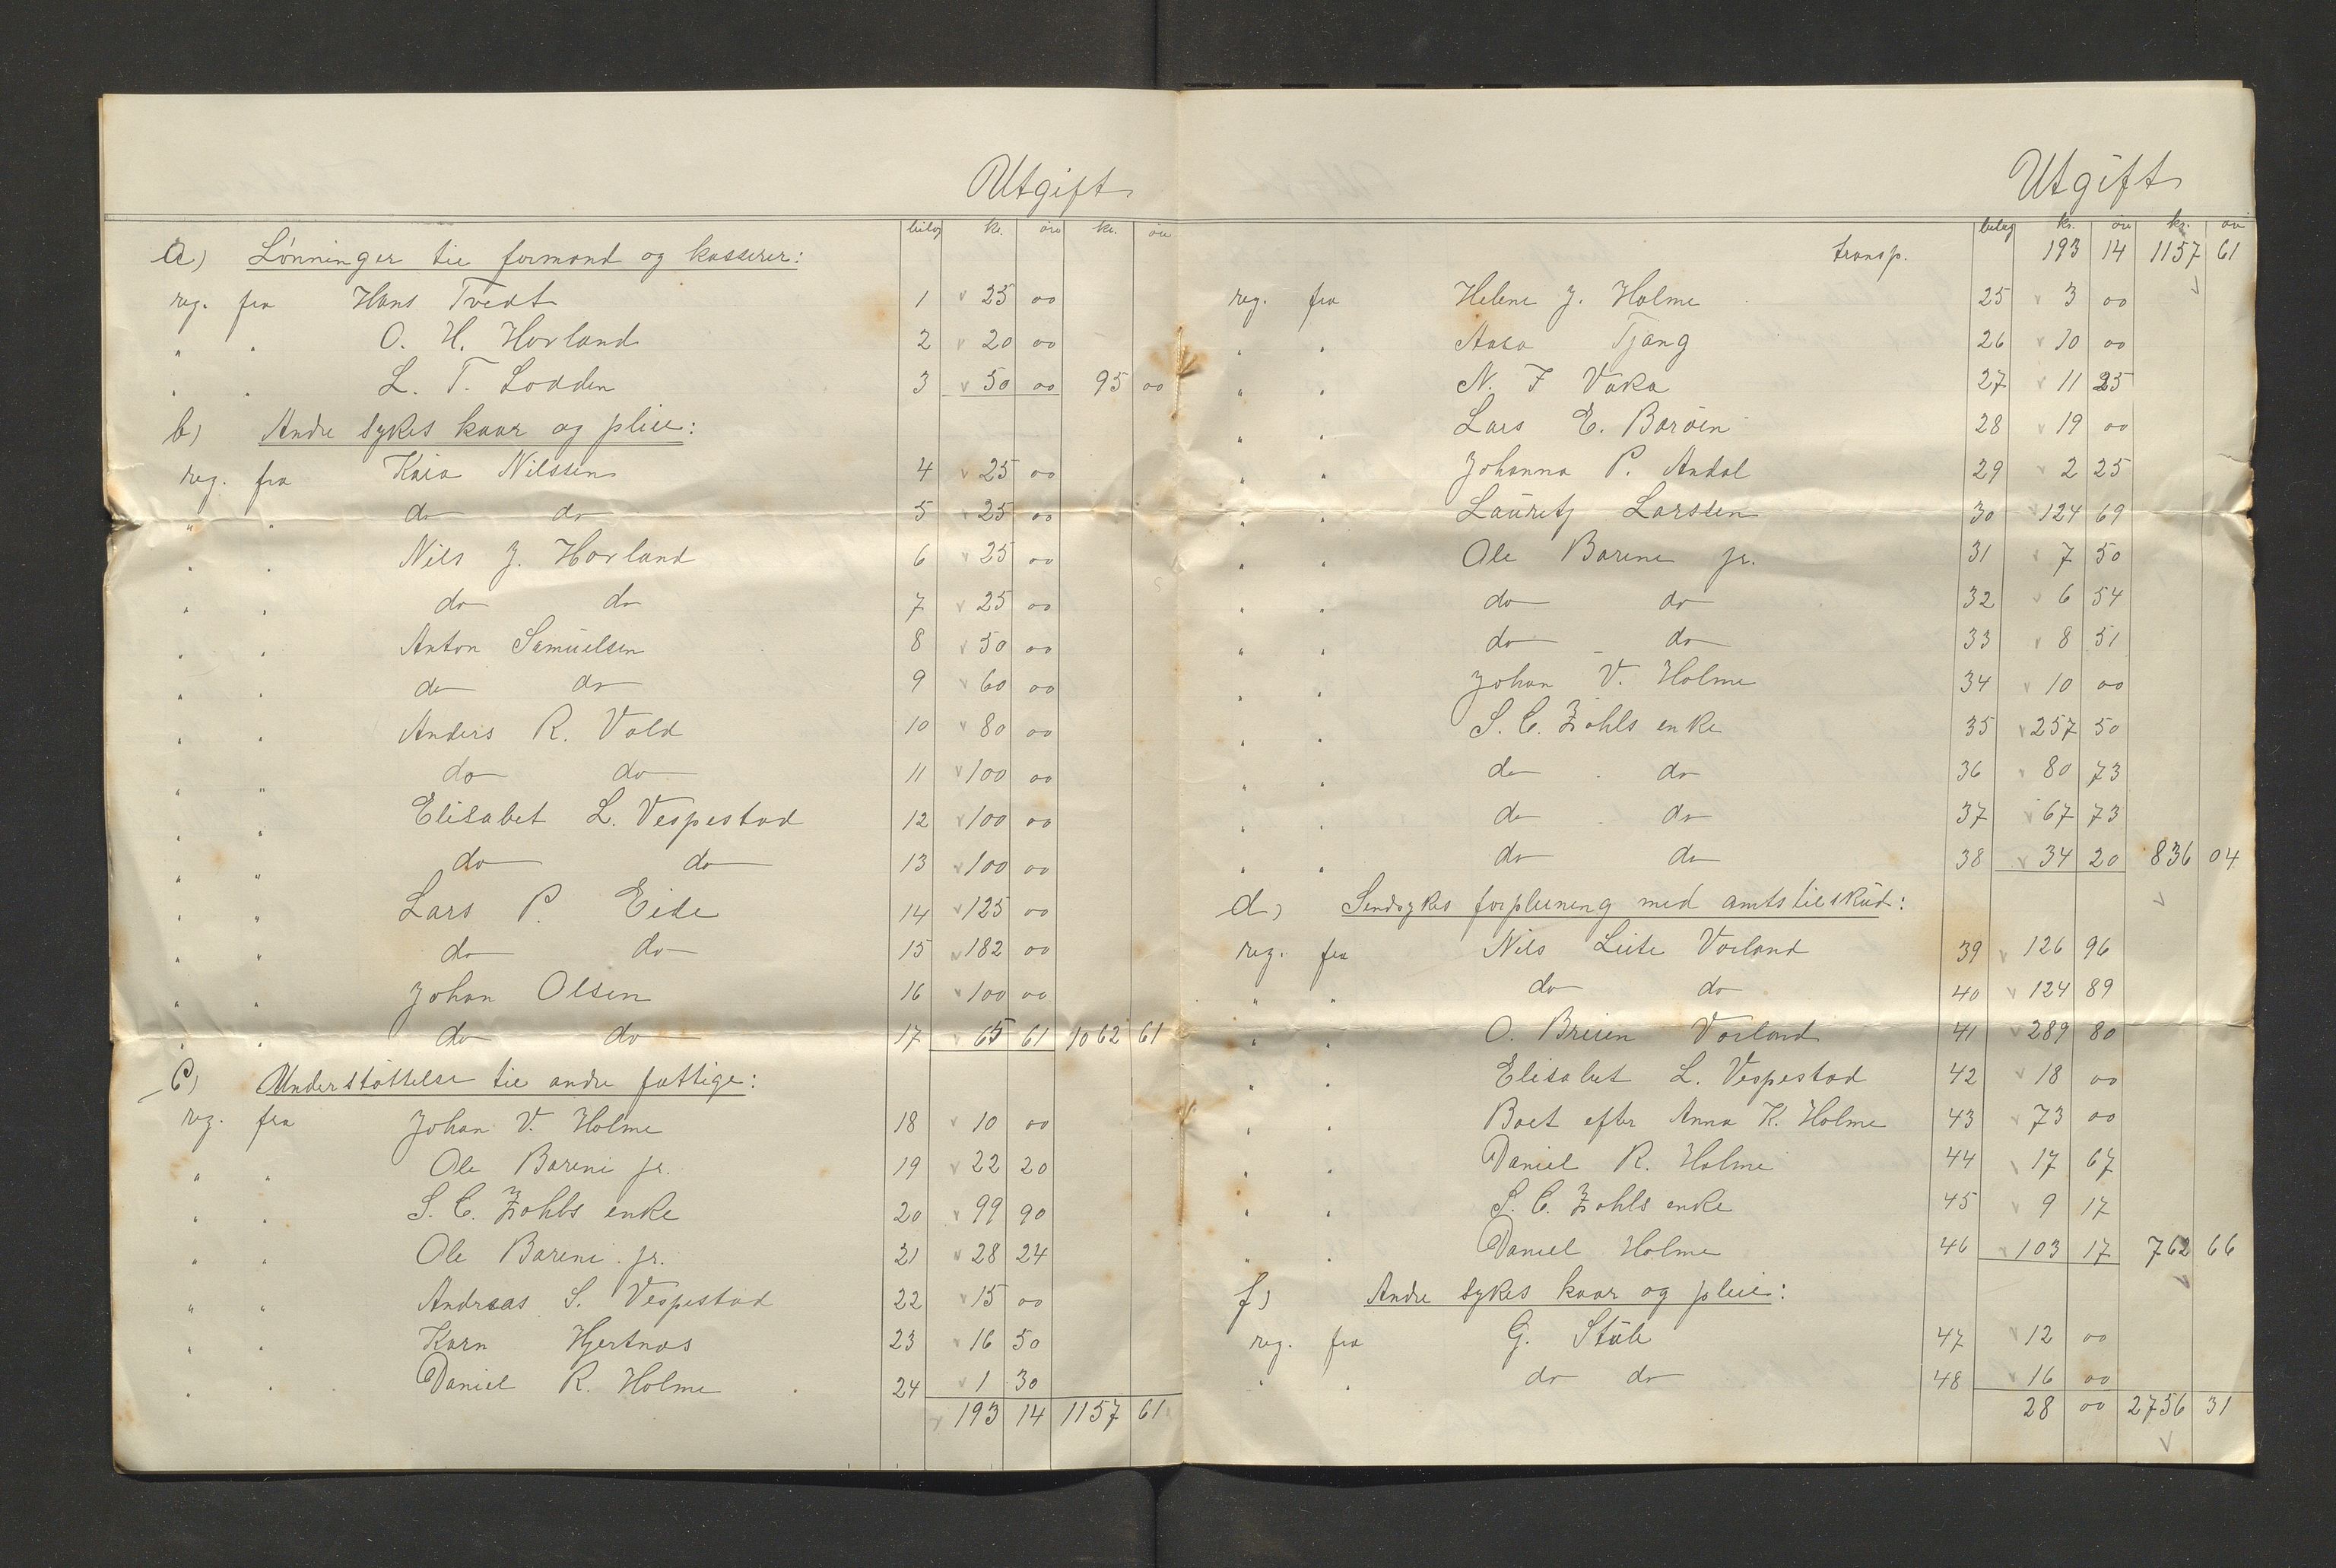 Utgift
bilag kr. øre kr. øre
a) Lønninger til formand og kasserer:
reg. fra Hans Tvedt 1 25 00
" " O. H. Horland 2 20 00
" " L. T. Lodden 3 50 00 95 00
b) Andre sykes kaar og pleie:
reg. fra Kaia Nilssen 4 25 00
" " do do 5 25 00
" " Nils J. Horland 6 25 00
" " do do 7 25 00
" " Anton Samuelsen 8 50 00
" " do do 9 60 00
" " Anders R. Vold 10 80 00
" " do do 11 100 00
" " Elisabet L. Vespestad 12 100 00
" " do do 13 100 00
" " Lars P. Eide 14 125 00
" " do do 15 182 00
" " Johan Olsen 16 100 00
" " do do 17 65 61 1062 61
c) Understøttelse til andre fattige:
reg. fra Johan V. Holme 18 10 00
" " Ole Bareni jr. 19 22 20
" " S. C. Zahls enke 20 99 90
" " Ole Bareni jr. 21 28 24
" " Andreas S. Vespestad 22 15 00
" " Karn Hjertnas 23 16 50
" " Daniel R. Holme 24 1 30
193 14 1157 61
Utgift
bilag kr. øre kr. øre
transp. 193 14 1157 61
reg. fra Helene J. Holme 25 3 00
" " Aasa Tjang 26 10 00
" " N. F Vaka 27 11 25
" " Lars E. Barøen 28 19 00
" " Johanna P. Andal 29 2 25
" " Lauritz Larssen 30 124 69
" " Ole Barene jr. 31 7 50
" " do do 32 6 54
" " do do 33 8 51
" " Johan V. Holme 34 10 00
" " S. C. Zahls enke 35 257 50
" " do do 36 80 73
" " do do 37 67 73
" " do do 38 34 20 836 04
d) Sindsykes forpleining med amtstilskud:
reg. fra Nils Leite Vorland 39 126 96
" " do do 40 124 89
" " O. Breien Vorland 41 289 80
" " Elisabet L. Vespestad 42 18 00
" " Boet efter Anna K. Holme 43 73 00
" " Daniel R. Holme 44 17 67
" " S. C. Zahls enke 45 9 17
" " Daniel Holme 46 103 17 762 66
f) Andre sykes kaar og pleie:
reg. fra G. Stub 47 12 00
" " do do 48 16 00
28 00 2756 31